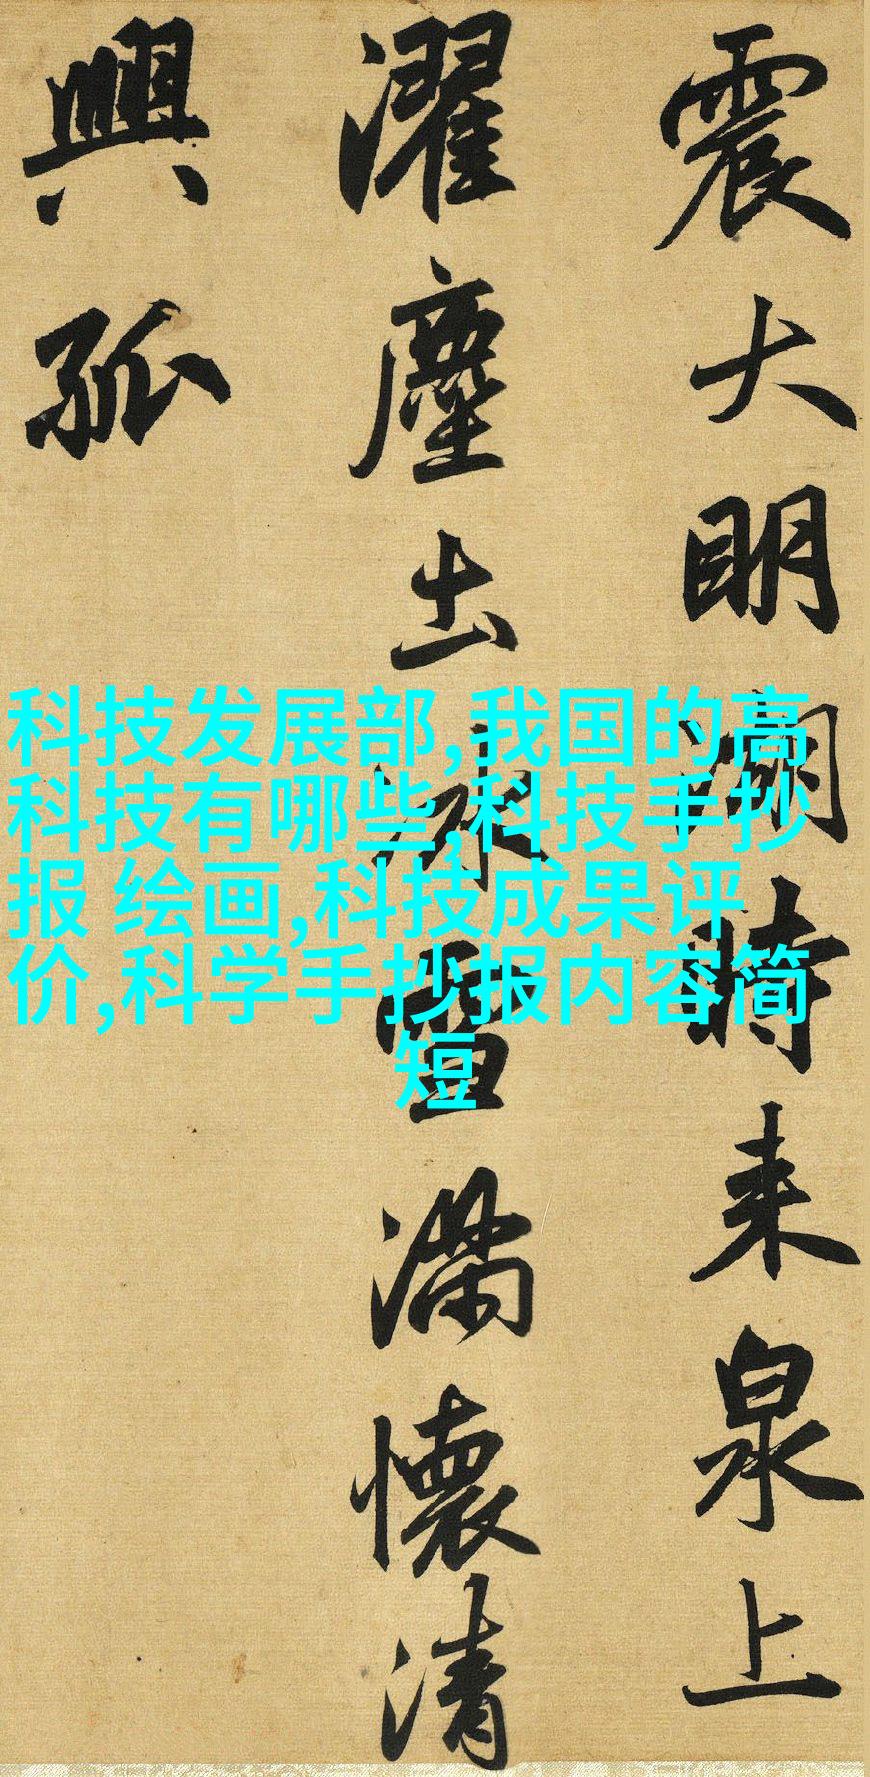 震大明湖時来泉上
濯塵土冰雪滿懷清
興孤
科技发展部,我国的高
科技有哪些,科技手抄
报 绘画,科技成果评
价,科学手抄报内容简
短